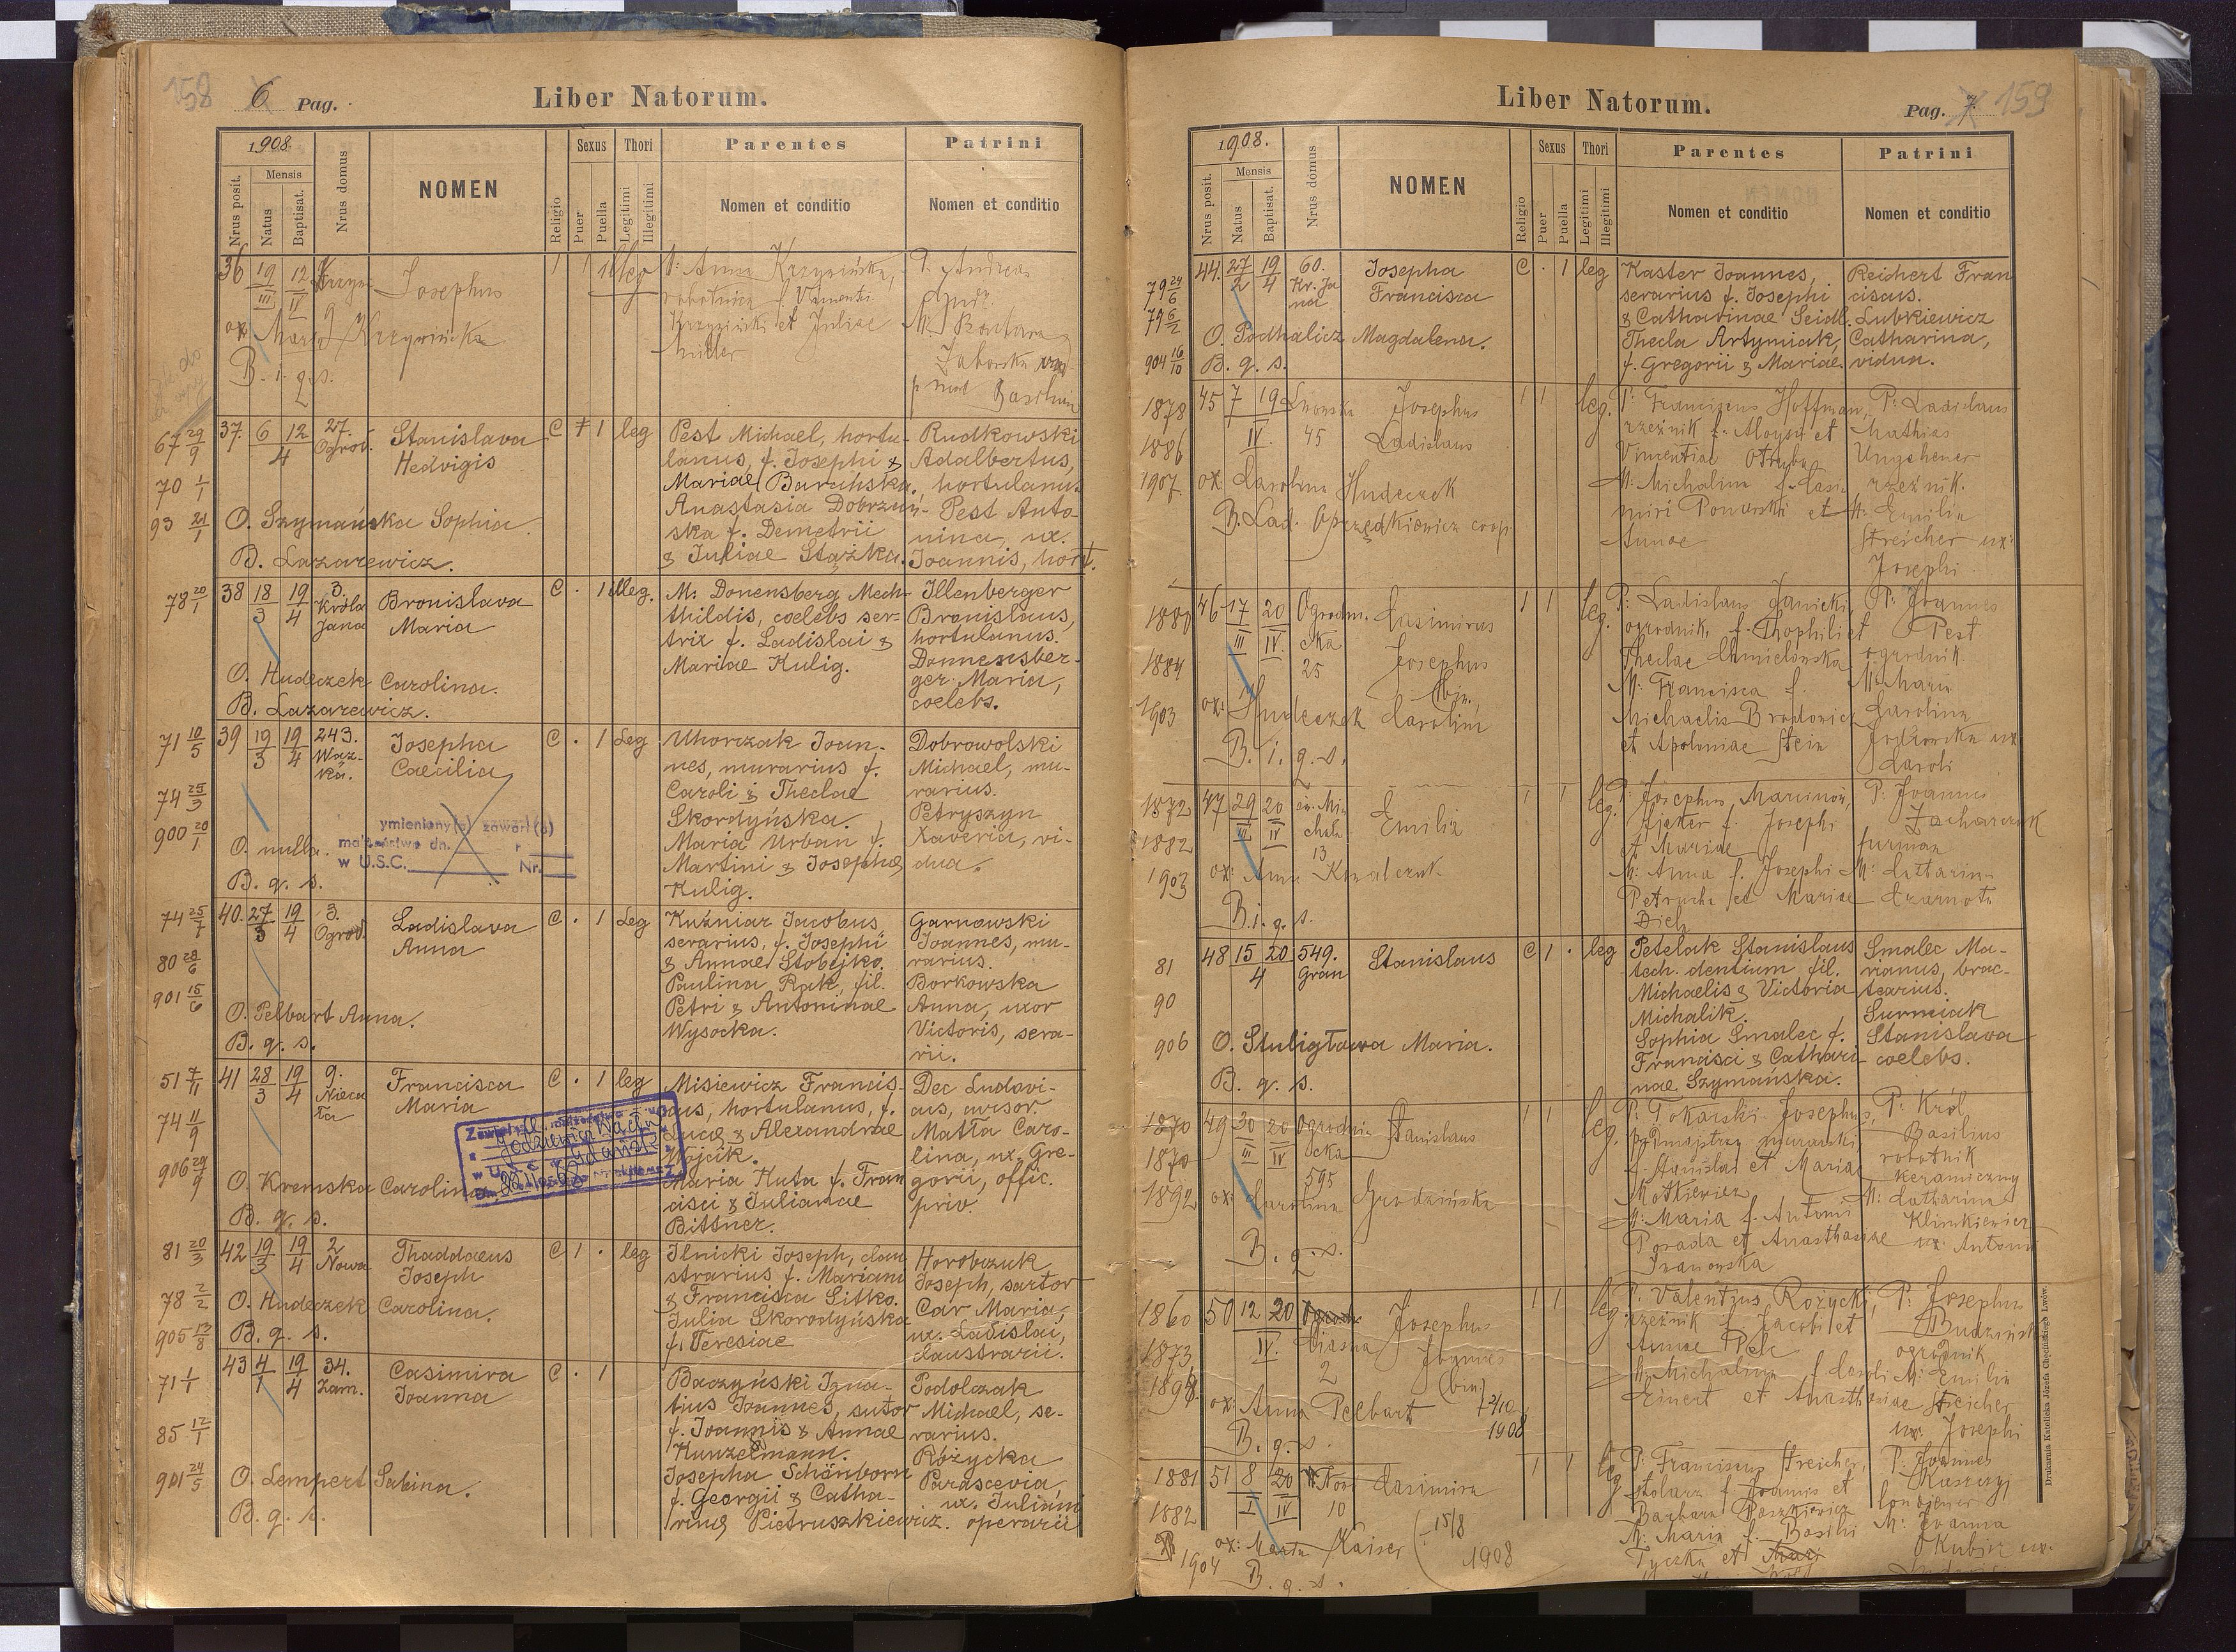 158
6 Pag.
Liber Natorum.
1908
Nrus posit.
Mensis
Natus
Baptisat.
Nrus domus
NOMEN
Religio
Sexus
Puer
Puella
Thori
Legitimi
Illegitimi
Parentes
Nomen et conditio
Patrini
Nomen et conditio
36 19/III 12/IV 9 Josephus 1 1 illeg
M: Anna Krzyzińska,
robotnica f.
Krzyziński et Juliae
Miller
P. Andreas
M. Barbara
Zaborska
B. i. q. s.
67 29/9
70 1/1
93 21/1
37. 6 12/4 27. Ogrod. Stanislava C 1 leg
Hedvigis
Pest Michael, hortu-
lanus, f. Josephi &
Mariae Barańska.
Anastasia Dobrzań-
ska f. Demetrii
& Juliae Stążka.
Rudkowski
Adalbertus,
hortulanus
Pest Anto-
nina, ux.
Joannis, hort.
O. Szymańska Sophia
B. Lazarewicz.
78 20/1
38 18/3 19/4 3. Króla Jana Bronislava C . 1 illeg.
Maria
M: Donensberg Mech-
thildis, coelebs ser-
trix f. Ladislai &
Mariae Kulig.
Illenberger
Bronislaus,
hortulanus.
Donnensber-
ger Maria,
coelebs.
O. Hudeczek Carolina.
B. Lazarewicz.
71 10/5
74 25/3
900 20/1
39 19/3 19/4 243. Waz-ka. Josepha C . 1 Leg
Caecilia
Uhorczak Joan-
nes, murarius f.
Caroli & Theclae
Skordyńska.
Maria Urban f.
Martini & Josephae
Kulig.
Dobrowolski
Michael, mu-
rarius.
Petryszyn
Xaveria, vi-
dua.
ymieniony(a) zawarł(a)
małżeństwo dn. r
w U.S.C. Nr.
O. nulla.
B. q. s.
74 25/7
80 28/6
901 15/6
40. 27/3 19/4 3. Ogrod. Ladislava C . 1 Leg
Anna
Kuźniar Jacobus
serarius, f. Josephi
& Annae Stobejko.
Paulina Rak, fil.
Petri & Antoninae
Wysocka.
Garnowski
Joannes, mu-
rarius.
Borkowska
Anna, uxor
Victoris, sera-
rii.
O. Pelbart Anna.
B. q. s.
51 7/11
74 11/9
906 29/9
41 28/3 19/4 9. Nieca ła Francisca C . 1 leg
Maria
Misiewicz Francis-
cus, hortulanus, f.
Lucae & Alexandrae
Wójcik.
Maria Kuta f. Fran
cisci & Julianae
Bittner.
Dec Ludovi-
cus, cursor.
Matta Caro-
lina, ux. Gre-
gorii, offic.
priv.
O. Kremska Carolina
B. q. s.
81 20/3
78 2/2
905 13/8
42 19/3 19/4 2 Nowa Thaddaeus C 1 . leg
Joseph
Ilnicki Joseph, clau
strarius f. Mariani
& Francisca Sitko.
Julia Skorodyńska
f. Teresiae
Horobczuk
Joseph, sartor
Car Maria,
ux. Ladislai,
claustrarii.
O. Hudeczek Carolina.
B. q. s.
71 1/1
85 12/1
901 24/5
43 4/1 19/4 34. Zam. Casimira C . 1
Joanna
Baczyński Igna-
tius Joannes, sutor
f. Joannis & Annae
Kunzelmann.
Josepha Schönborn
f. Georgii & Catha-
rinae Pietruszkiewicz.
Podolczak
Michael, se-
rarius.
Różycka
Parascevia,
ux. Juliani
operarii
O. Lempert Sabina.
B. q. s.
Liber Natorum.
Pag. 7. 159
1908.
Nrus posit.
Mensis
Natus
Baptisat.
Nrus domus
NOMEN
Religio
Sexus
Puer
Puella
Thori
Legitimi
Illegitimi
Parentes
Nomen et conditio
Patrini
Nomen et conditio
79 24/6
79 6/2
904 16/10
44. 27/2 19/4 60. Kr. Ja na Josepha C . 1 leg
Francisca
Kaster Joannes,
serarius f. Josephi
& Catharinae Seidl.
Thecla Artymiak,
f. Gregorii & Mariae.
Reichert Fran
ciscus.
Lubkiewicz
Catharina,
vidua.
O. Podhalicz Magdalena.
B. q. s.
1878
1886
1907
45 7/IV 19 Lwowska 45 Josephus 1 1 leg.
Ladislaus
P: Franciscus Hoffman,
rzeźnik f. Aloysii et
Vincentiae Otryba
M: Michalina f. Casi-
miri Ponurski et
Annae
P: Ladislaus
Mathias
Ungehener
rzeźnik.
M: Emilia
Streicher ux:
Josephi
ox: Carolina Hudeczek
B. Lad. Oprzędkiewicz coop.
1880
1884
1903
46 17/III 20/IV Ogrodni. cka 25 Casimirus 1 1 leg.
Josephus
(bin.)
P: Ladislaus Janicki,
ogrodnik, f. Theophili et
Theclae Chmielowska
M: Francisca f.
Michaelis Brodowicz
et Apoloniae Stein
P: Joannes
Pest
ogrodnik
M: Maria
Carolina
ux
Caroli
ox: Hudeczek Carolina
B. i. q. s.
1872
1882
1903
47 29/III 20/IV św. Mi chała 13 Emilia 1 1 leg.
P: Josephus Marcinów,
f. Josephi
et Mariae
M: Anna f. Josephi
Petrucha et Mariae
Diet
P: Joannes
Zacharczuk
furman
M: Catharina
Czarnota
ox: Anna Kowalczuk
B. i. q. s.
81
90
906
48 15 20/4 549. Gran Stanislaus C 1 . leg
Petelak Stanislaus
tech. dentium, fil.
Michaelis & Victoria
Michalik.
Sophia Smalec f.
Francisci & Cathari
nae Szymańska.
Smalec Ma-
rianus, brac-
tearius.
Surmiak
Stanislava
coelebs.
O. Stuligłowa Maria.
B. q. s.
1870
1870
1892
49 30/III 20/IV Ogrodni cka 595 Stanislaus 1 1 leg.
P. Tokarski Josephus,
murarski
f. Stanislai et Mariae
Motkiewicz
M: Maria f. Antoni
Posada et Anasthasiae
Iwanowska
P: Król
Basilius
robotnik
keramiczny
M: Catharina
Klimkiewicz
ux Antoni
ox: Carolina Grodzińska
B. q. s.
1860
1873
1898
50 12/IV 20 Ciasna 2 Josephus 1 1 leg.
Joannes
(bin)
P. Valentinus Rożycki,
rzeźnik f. Jacobi et
Annae Pelc
M: Michalina f. Caroli
Einert et Anasthasiae
P: Josephus
Budziński
ogrodnik
M: Emilia
Streicher
ux. Josephi
ox: Anna Pelbart
1908
B. q. s.
1881
1882
1904
51 8/I 20/IV 10 Casimira 1 1 leg
P: Franciscus Streicher,
stolarz f. Joannis et
Barbara Paszkiewicz
M: Maria f. Basilii
Tyczka et
P: Joannes
Kaszczyj
M: Joanna
Kubisz ux:
ox: Maria Kaiser
15/8
1908
B. q. s.
Drukarnia Katolicka Józefa Chęcińskiego Lwów.